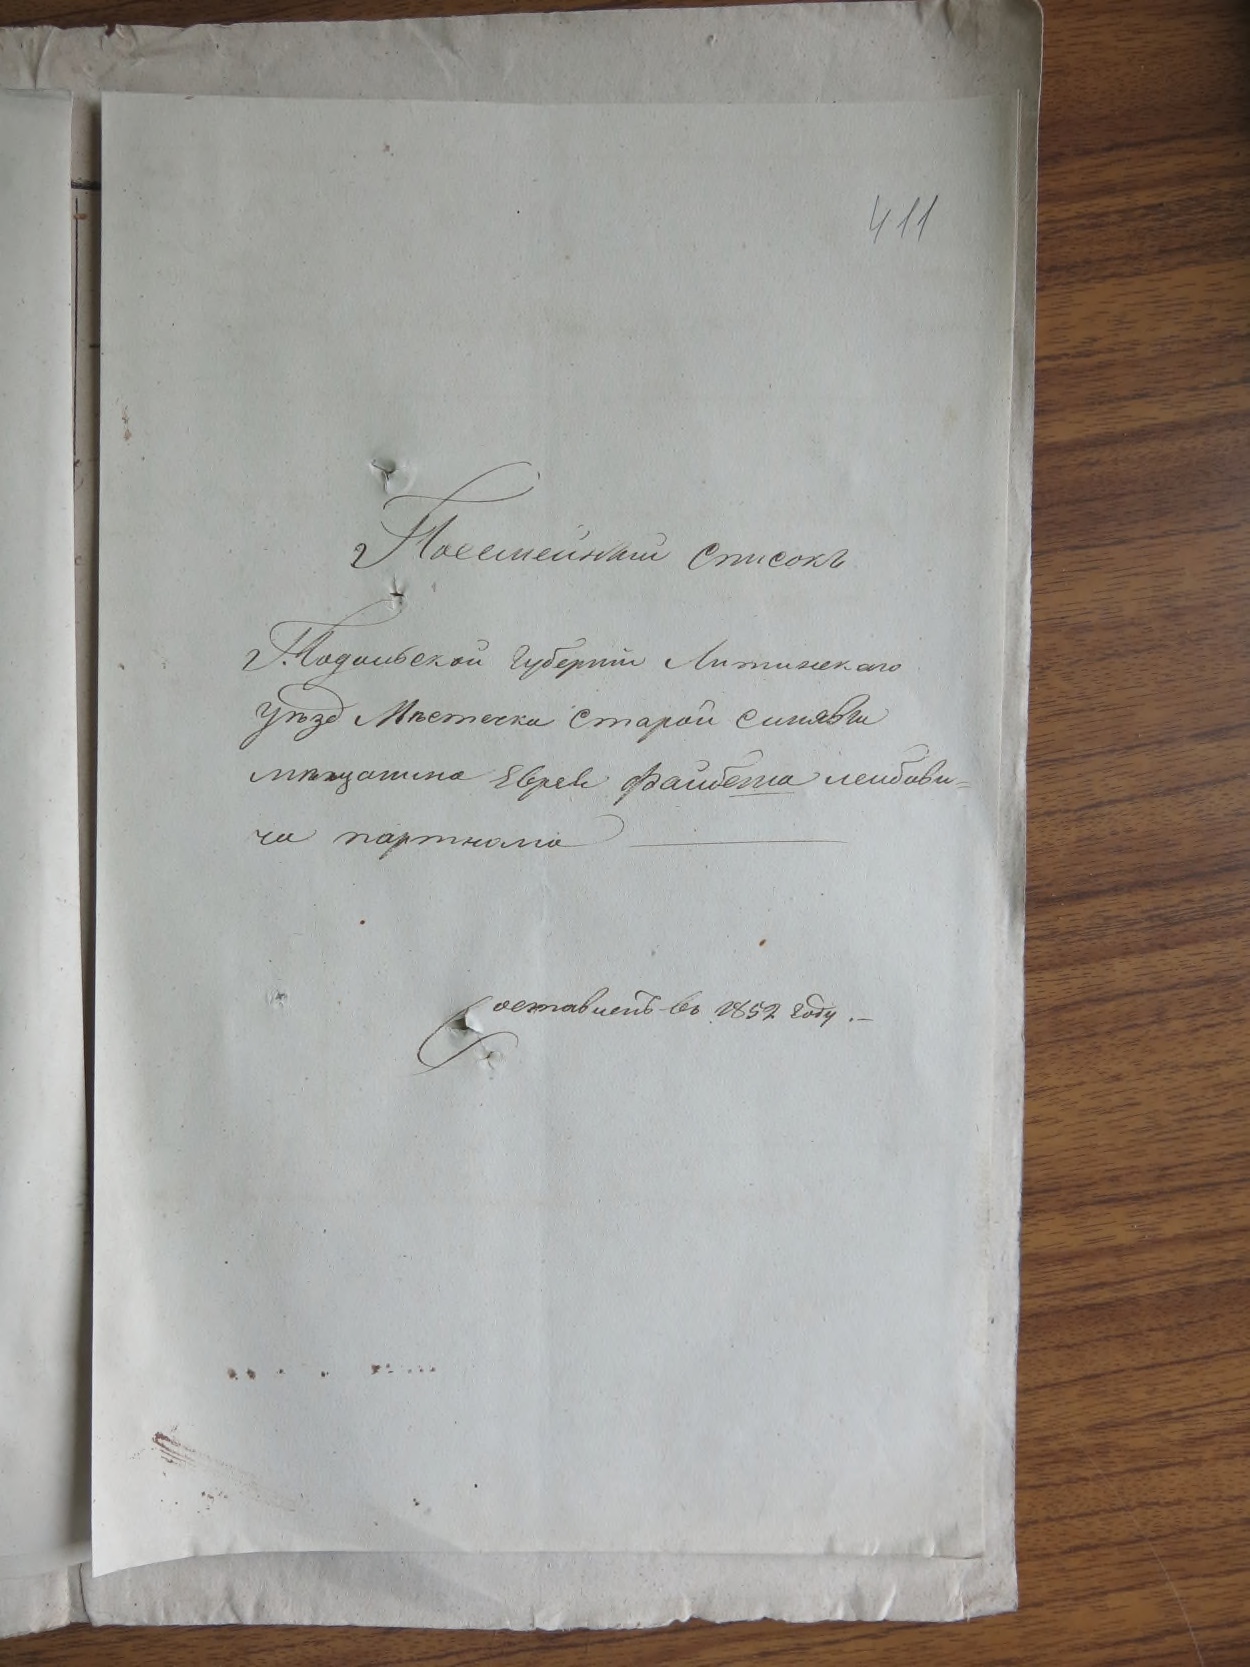 411
Посемейный списокъ
Подольской губерніи Литинскаго
уѣзд Мѣстечка Старой Синявы
мѣщанина Еврея Файбеша Лейбови=
ча партнама
Составленъ въ 1852 году.—